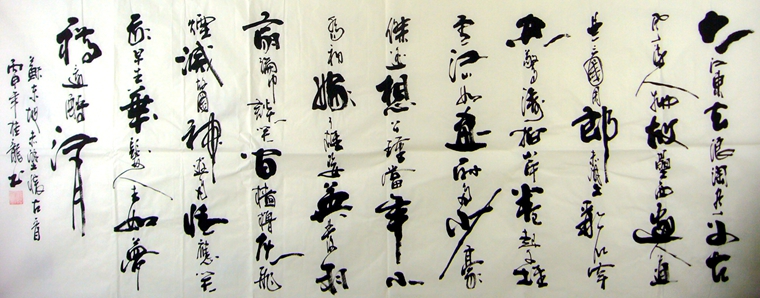 大江東去浪淘尽千古
風流人物故壘西邊人道
是三國周郎赤壁亂石穿
空驚濤拍岸卷起千堆
雪江山如畫一時多少豪
傑遙想公瑾當年小
喬初嫁了雄姿英發羽
扇綸巾談笑間檣櫓灰飛
煙滅故國神遊多情應笑
我早生華髮人生如夢
一樽還酹江月
蘇東坡赤壁懷古
龍书